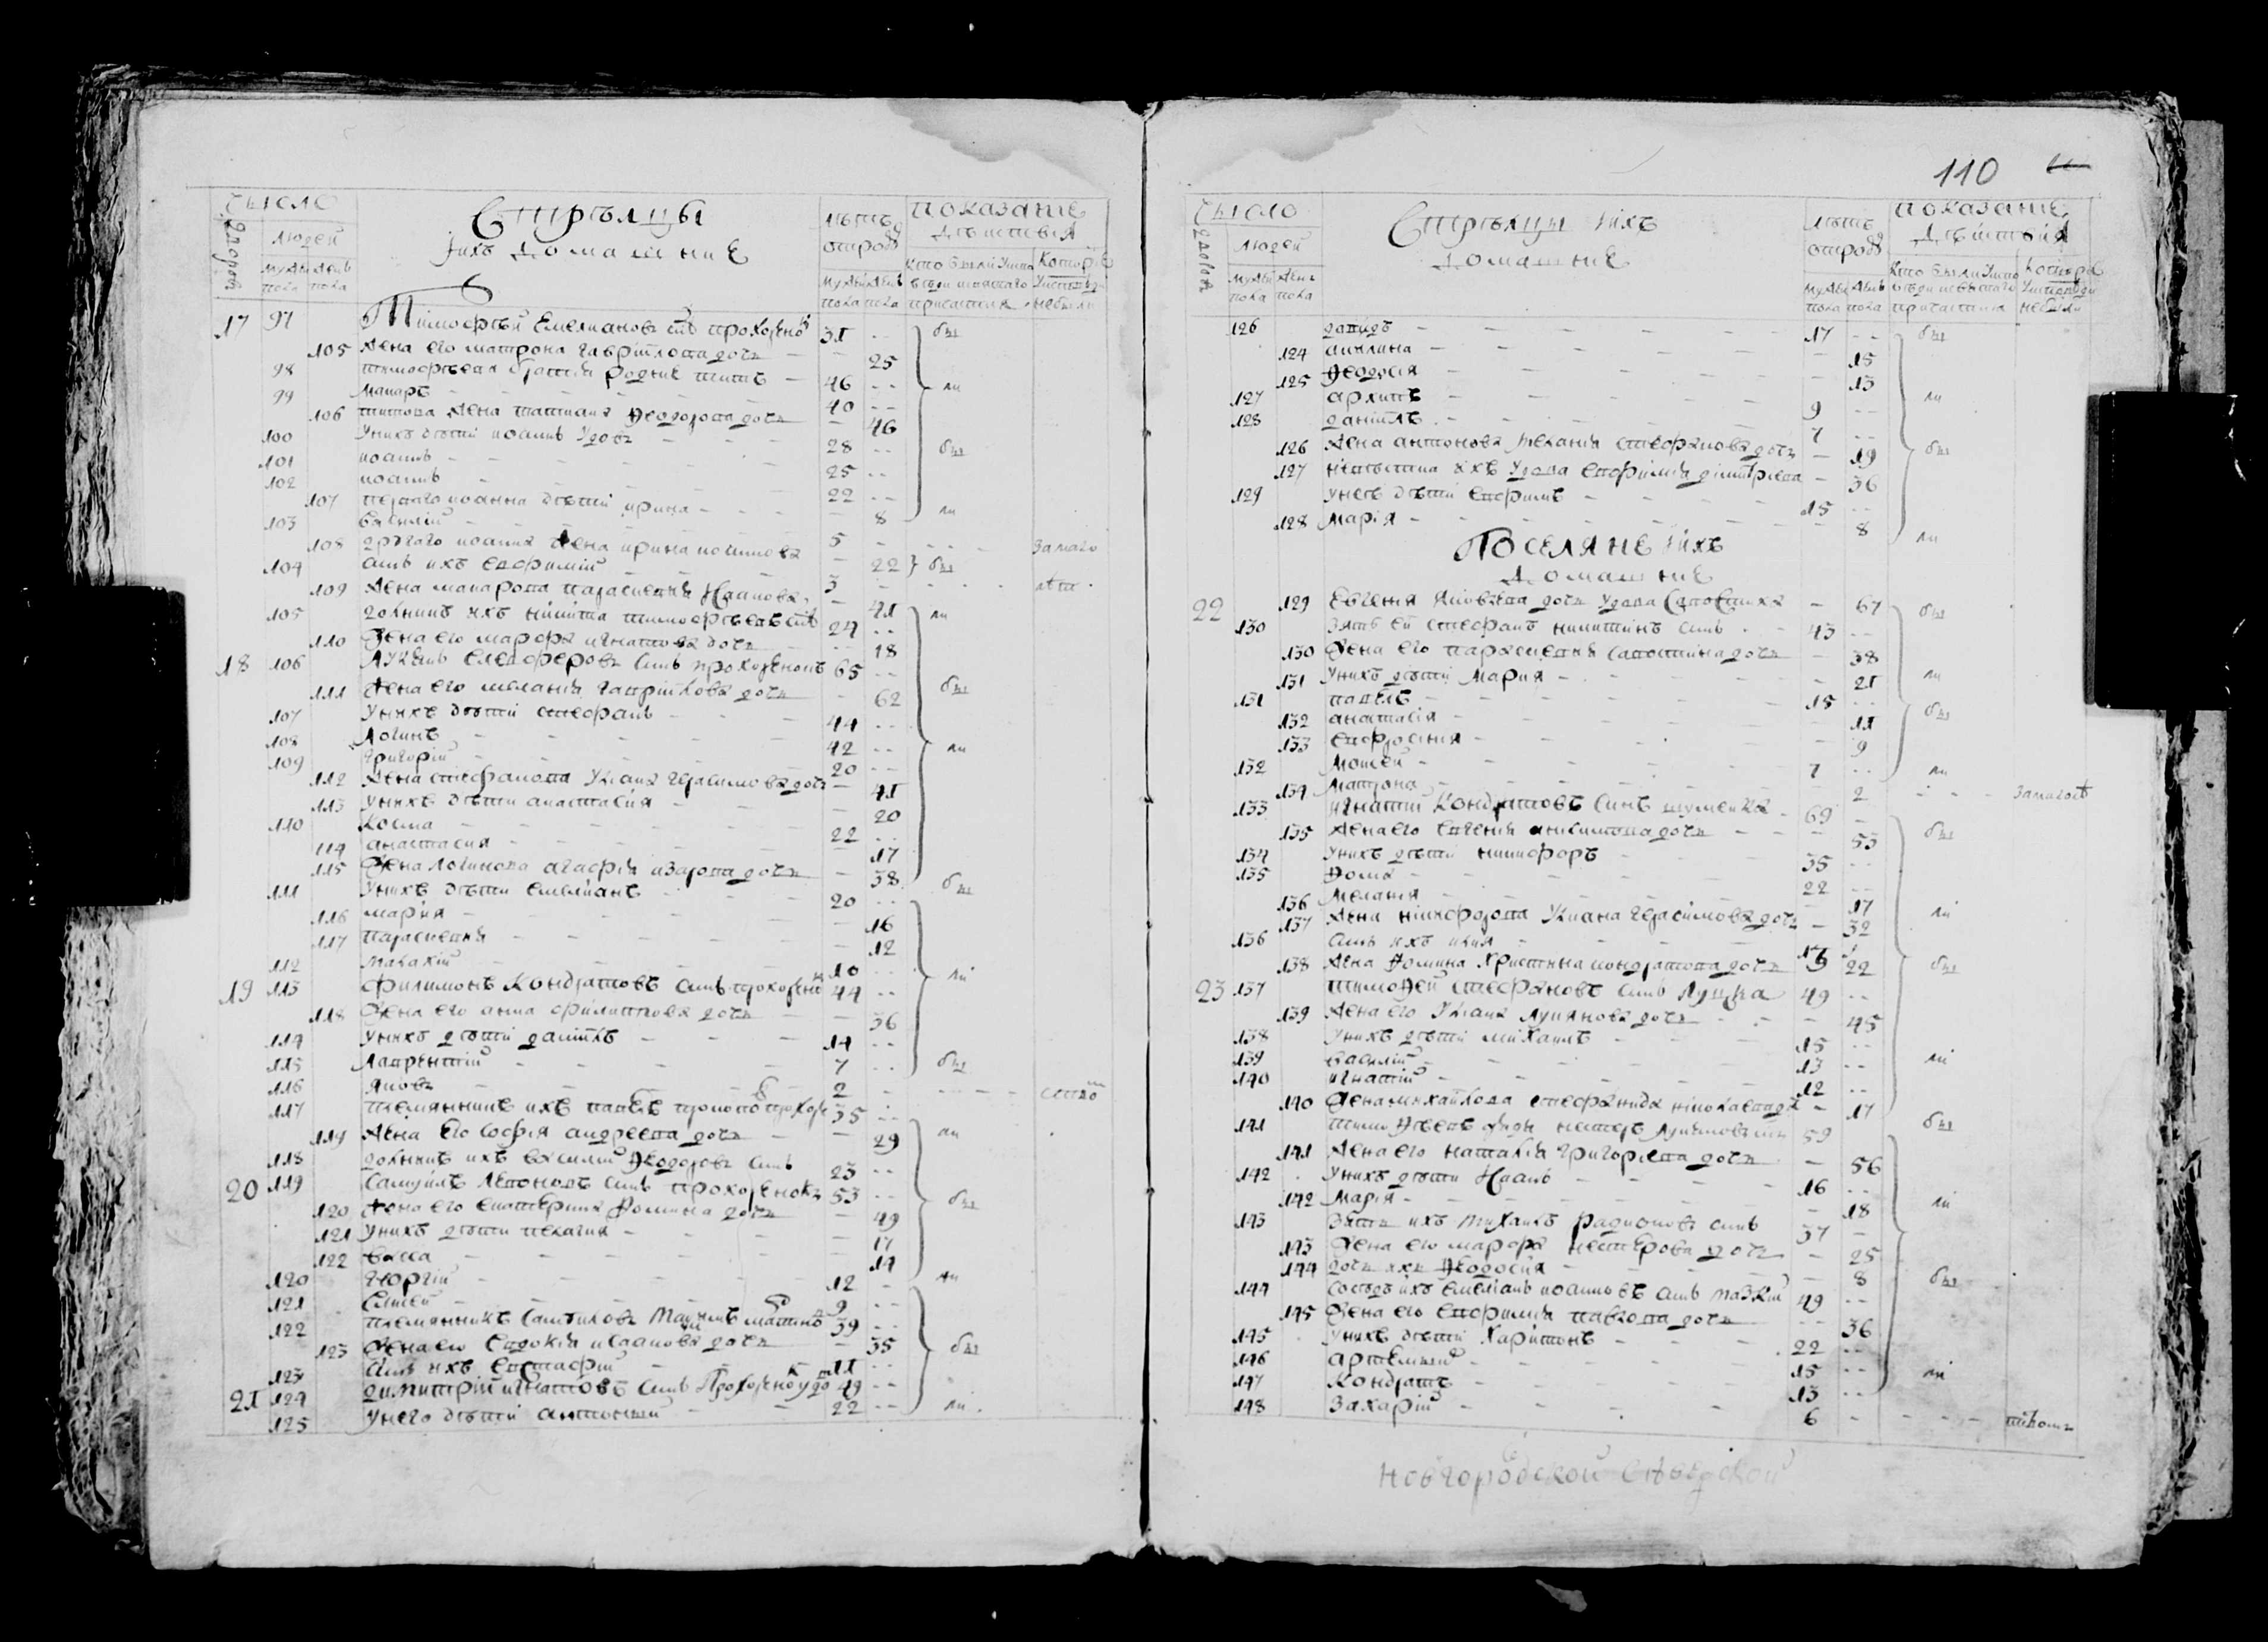 110
число
дворов
людей
муж женъ
пола пола
Стрѣлцы
иихъ домашние
лѣтъ
отрод
муж женъ
пола пола
показание
дѣйствия
кто были у испо
веди и святаго
причастия
Которые
у исповеди
небыли
17 97 Тимофѣй Емелиановъ снъ прохоренко 31 -- бы
105 жена его матрона гавріилова дочь — 25
98 тимофѣевы братия родние титъ — 46 --
99 макаръ — 40 -- ли
106 титова жена татиана Ѳеодорова дочь — 46
100 У нихъ дѣти иоаннъ Удовъ 28 -- бы
101 иоаннъ — 25 --
102 иоаннъ — 22 --
107 первого иоанна дѣти ирина — 8
103 Василій — 5 - ли
108 другаго иоанна жена ирина иоаннова — 22 бы
104 снъ ихъ Евфимій 3 - за мало
109 жена макарова параскевия Иванова — 41 лѣт
105 ихъ никита тимофѣевъ снъ 24 -- ли
110 Жена его марфа игнатова дочь — 18
18 106 Лукянъ Елевферовъ снъ прохоренокъ 65 --
111 жена его мелания гавриілова дочь — 62 бы
107 У нихъ дѣти стефанъ — 44 --
108 Логинъ — 42 --
109 григорій — 20 -- ли
112 жена стефанова Улиана герасимова дочь — 41
113 У нихъ дѣти анастасия — 20
110 Косма — 22 --
114 анастасия — 17
115 Жена логинова агафія азарова дочь — 38
111 У нихъ дѣти емелианъ 20 -- бы
116 мария — 16
117 параскевия — 12
112 малахій 10 --
19 113 Филимонъ Кондратовъ снъ прохоренко 44 -- ли
118 Жена его анна филиппова дочь — 36
114 У нихъ дѣти даниілъ — 14 --
115 Лаврентій — 7 -- бы
116 яковъ — 2 -
117 племянникъ ихъ павелъ прохоре 35 --
119 жена его София андреева дочь — 29 ли
118 ихъ василий Ѳеодоровъ снъ 23 --
20 119 Самуилъ леоновъ снъ прохоренокъ 53 --
120 жена его екатерина Ѳомина дочь — 49 бы
121 У нихъ дѣти пелагия — 17
122 васса — 14
120 георгій — 12 - ли
121 Елисей — 9 --
122 племянникъ 39 --
123 Жена его Евдокия исакова дочь — 35 бы
123 снъ ихъ Евстафій — 11 --
21 124 димитрій игнатовъ снъ Прохоренко удо 49 --
125 У него дѣти антоній 22 -- ли
110
число
дворов
людей
муж женъ
пола пола
Стрѣлцы иихъ
домашние
лѣтъ
отрод
муж женъ
пола пола
показание
дѣйствия
кто были у испо
веди и святаго
причастия
которые
у исповеди
небыли
126 давидъ — 17 -- бы
124 акилина — 15
125 Ѳеодосия — 13
127 архипъ — 9 -- ли
128 даниілъ — 7 --
126 жена антонова мелания стефанова дочь — 19 бы
127 невѣстка ихъ удова евфимия димитриева — 36
129 У нее дѣти евфимъ — 15 --
128 Мария — 8 ли
Поселяне иихъ
домашние
22 129 Евгения яковлева дочь удова — 67 бы
130 зять ей стефанъ никитинъ снъ — 43 --
130 Жена его параскевия дочь — 38
131 У нихъ дѣти Мария — 21 ли
131 павелъ — 15 --
132 анастасія — 11 бы
133 евфросиния — 9
132 Мойсей — 7 -- ли
134 Матрона — 2 за малост
133 игнатій Кондратовъ снъ шуменка 69 -
135 жена его евгения анисимова дочь — 53 бы
134 У нихъ дѣти никифоръ 35 --
135 Ѳома — 22 --
136 Мелания — 17
137 жена никифорова Улиана герасимова дочь — 32 ли
136 снъ ихъ илия
138 жена Ѳомина Христина кондратова дочь 22 бы
23 137 тимоѳей стефановъ снъ 49 --
139 жена его Улиана лукянова дочь — 45
138 У нихъ дѣти михаилъ 15 --
139 василій — 13 -- ли
140 игнатій — 12 --
140 Жена михайлова стефанида николаева — 17
141 несторъ лукяновъ 59 бы
141 жена его наталия григориева дочь — 56
142 У нихъ дѣти Иванъ 16 --
142 Мария — 18 ли
143 зять ихъ михаилъ радионовъ снъ 37 -
143 Жена его марфа нестерова дочь — 25
144 дочь ихъ Ѳеодосия — 8 бы
144 сосѣдъ ихъ емелианъ иоанновъ снъ 49 --
145 Жена его евфимия павлова дочь — 36
145 У нихъ дѣти Харитонъ 22 --
146 артемий — 15 --
147 Кондратъ — 13 -- ли
148 Захарій — 6 -
Новгородской